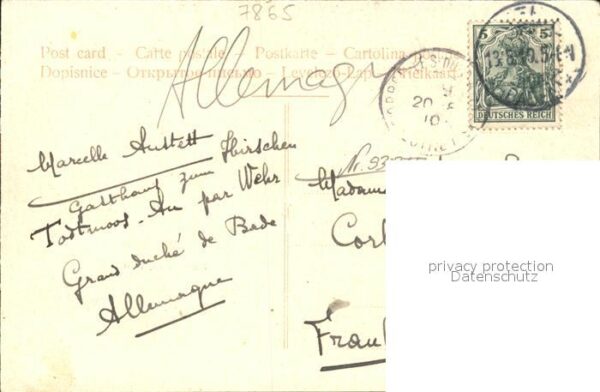 7865
Post card - Carte postale - Postkarte - Cartolina
Dopisnice - Открытое письмо - Levelező-Lap - Briefkaart
Allemagne
5 5
DEUTSCHES REICH
20
10
Marcelle Austett
Gasthaus zum Hirschen
Todtmoos-Au par Wehr
Grand duché de Bade
Allemagne
Madame
privacy protection
Datenschutz